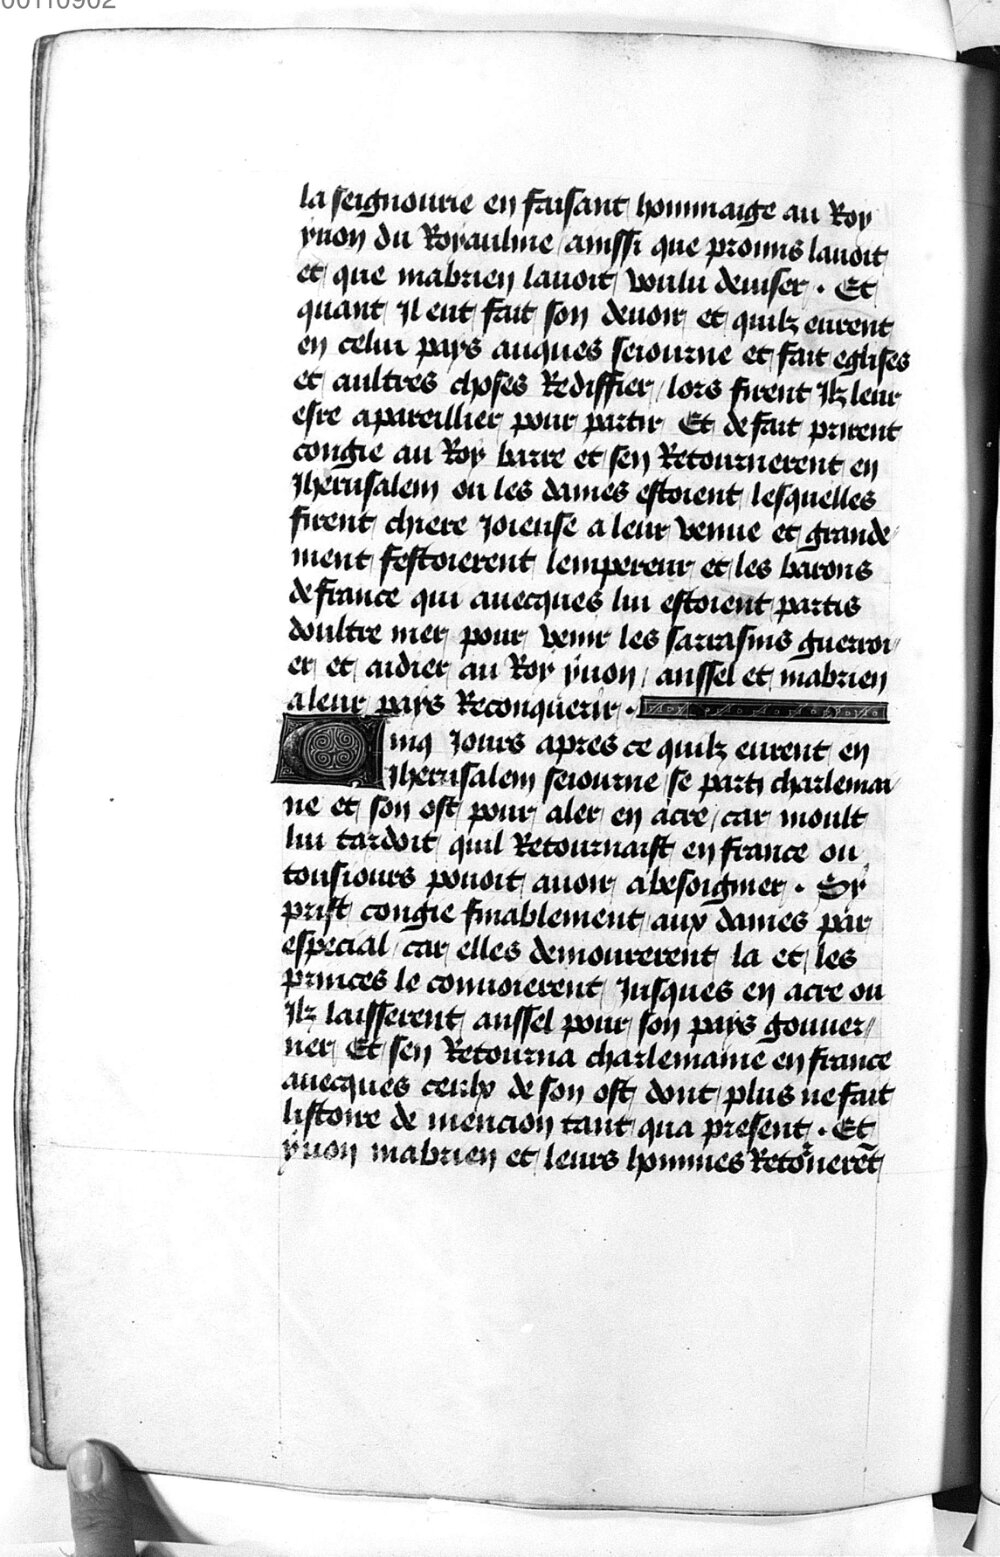 00110902
la seignourie en faisant hommaige au Roy
yuon du Royaulme ainssi que promis lauoit
et que mabrien lauoit voulu deuiser . Et
quant Il eut fait son deuoir et quilz eurent
en celui pays auques seiourne et fait eglises
et aultres choses Rediffier / lors firent Ilz leur
esre apareillier pour partir Et de fait prirent
congie au Roy barre et sen Retournerent en
Iherusalem ou les dames estoient lesquelles
firent chiere Ioieuse a leur venue et grande
ment festoierent lempereur et les barons
de france qui auecques lui estoient partis
doultre mer pour venir les sarrasins guerroi
er et aidier au Roy yuon / anssel et mabrien
a leur pays Reconquerir .
Cinq Iours apres ce quilz eurent en
Iherusalem seiourne se parti charlemai
ne et son ost pour aler en acre / car moult
lui tardoit quil Retournast en france ou
tousiours pouoit auoir abesoignier . Sy
prist congie finablement aux dames par
especial / car elles demourerent la et les
princes le conuoierent Iusques en acre ou
Ilz laisserent anssel pour son pays gouuer
ner Et sen Retourna charlemaine en france
auecques ceulx de son ost dont plus ne fait
listoire de mencion tant qua present . Et
yuon mabrien et leurs hommes Reto͛nerēt